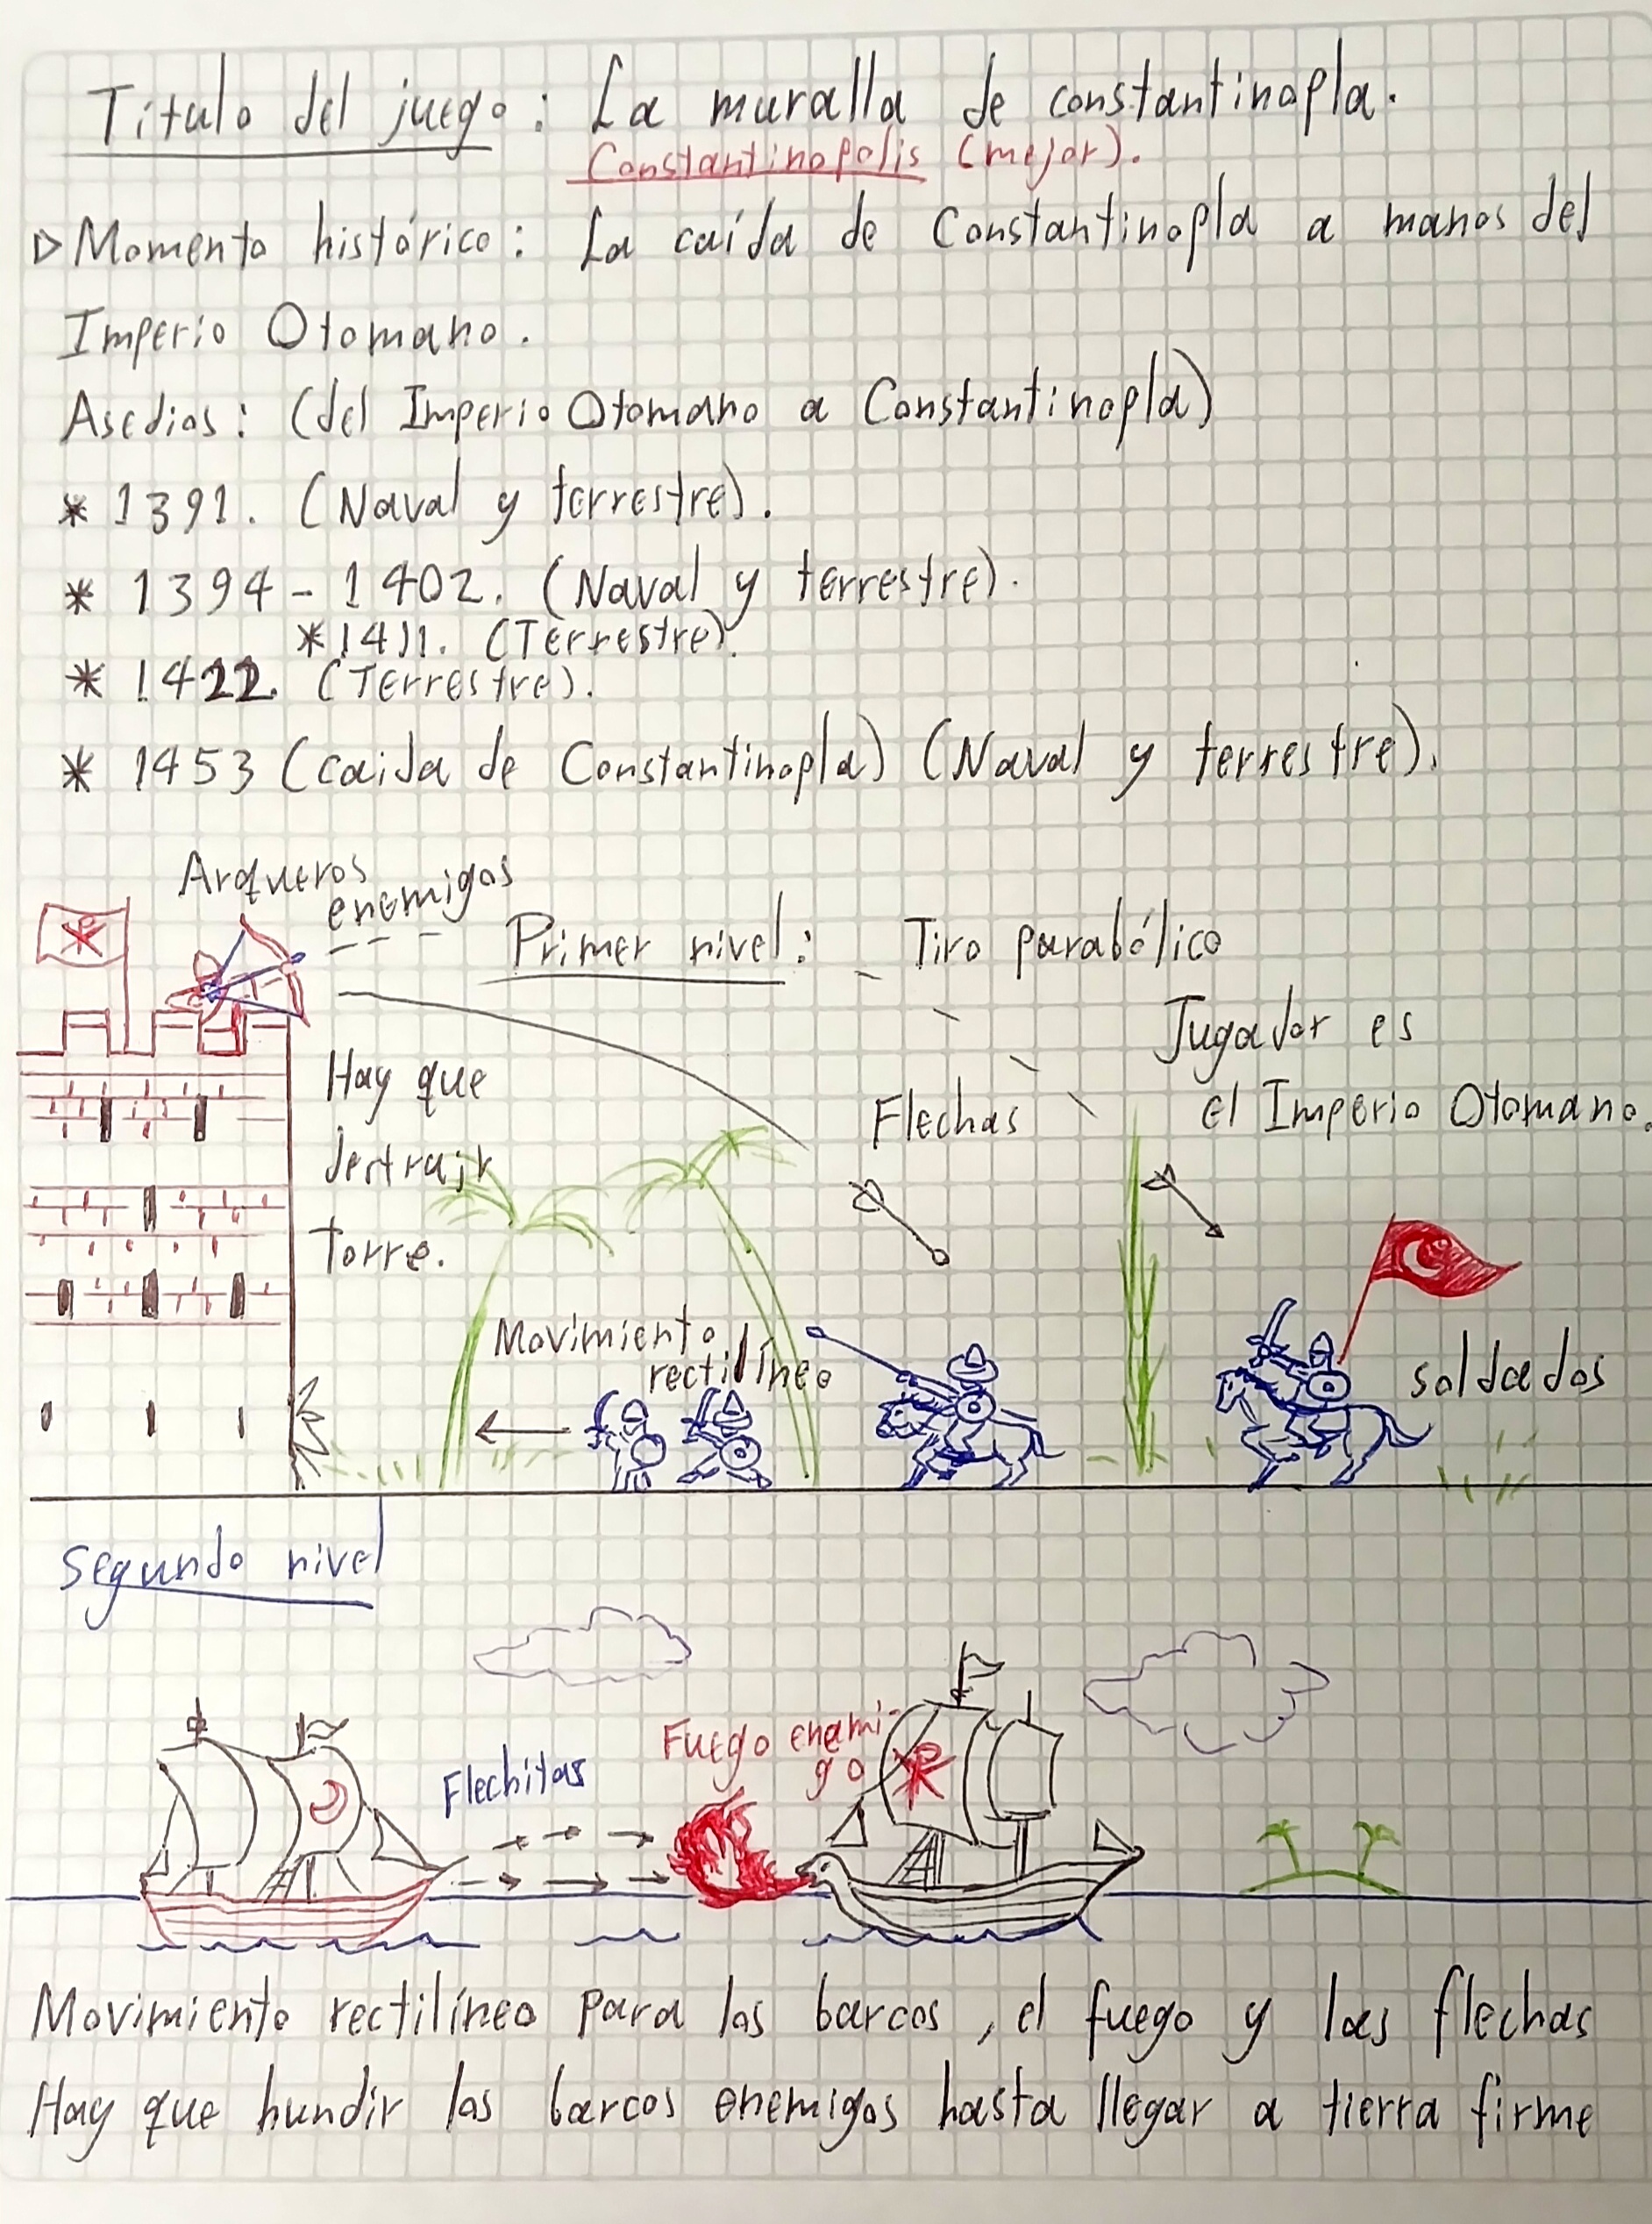 Título del juego: La muralla de constantinopla.
Constantinopolis (mejor).
▷ Momento histórico: La caída de Constantinopla a manos del
Imperio Otomano.
Asedios: (del Imperio Otomano a Constantinopla)
* 1391. (Naval y terrestre).
* 1394 - 1402. (Naval y terrestre).
* 1411. (Terrestre).
* 1422. (Terrestre).
* 1453 (caida de Constantinopla) (Naval y terrestre).
Arqueros
enemigos
Primer nivel: Tiro parabólico
Jugador es
el Imperio Otomano.
Hay que
destruir
torre.
Flechas
Movimiento
rectilíneo
soldados
Segundo nivel
Flechitas
Fuego enemi-
go
Movimiento rectilíneo para los barcos, el fuego y las flechas
Hay que hundir los barcos enemigos hasta llegar a tierra firme